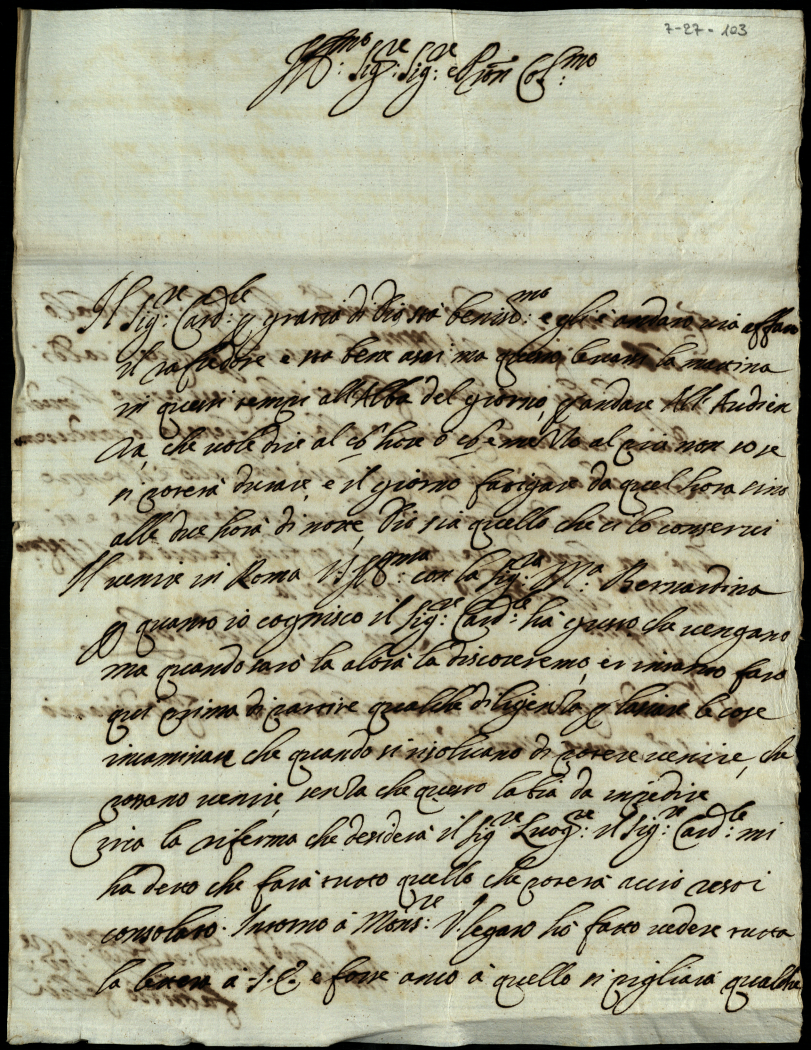 7-27-103
Ill:mo Sig:re Sig:re e Pron Col:mo
Il Sig:re Card:le p gratia di Dio stà beniss:mo e gli è andato via affato
il rafredore e sta bene assi ma questo levarsi la matina
in questi tempi all'Alba del giorno, p andare All'Audien
za, che vole dire al hore o e mezzo al più non so se
si poterà durare, e il giorno fatigare da quel hora sino
alle due hora di note, Dio sia quello che ci lo conservi
Il venire in Roma V.S. Ill:ma con la Sig:ra M:a Bernardina
p quanto io cognisco il Sig:re Card:le hà gusto che vengano
ma quando sarò la alora la discoreremo, et intanto farò
qui prima di partire qualche diligenza p lasciare le cose
incaminate che quando si risolvano di potere venire, che
possano venire, senza che questo labia da impedire
Circa la riferma che desidera il Sig:re Luog:te il Sig:re Card:le mi
ha detto che farà tutto quello che poterà acciò resti
consolato. Intorno à Mons:re V.legato hò fatto vedere tutta
la letera à S.E. e forse anco à quello si pigliarà qualche